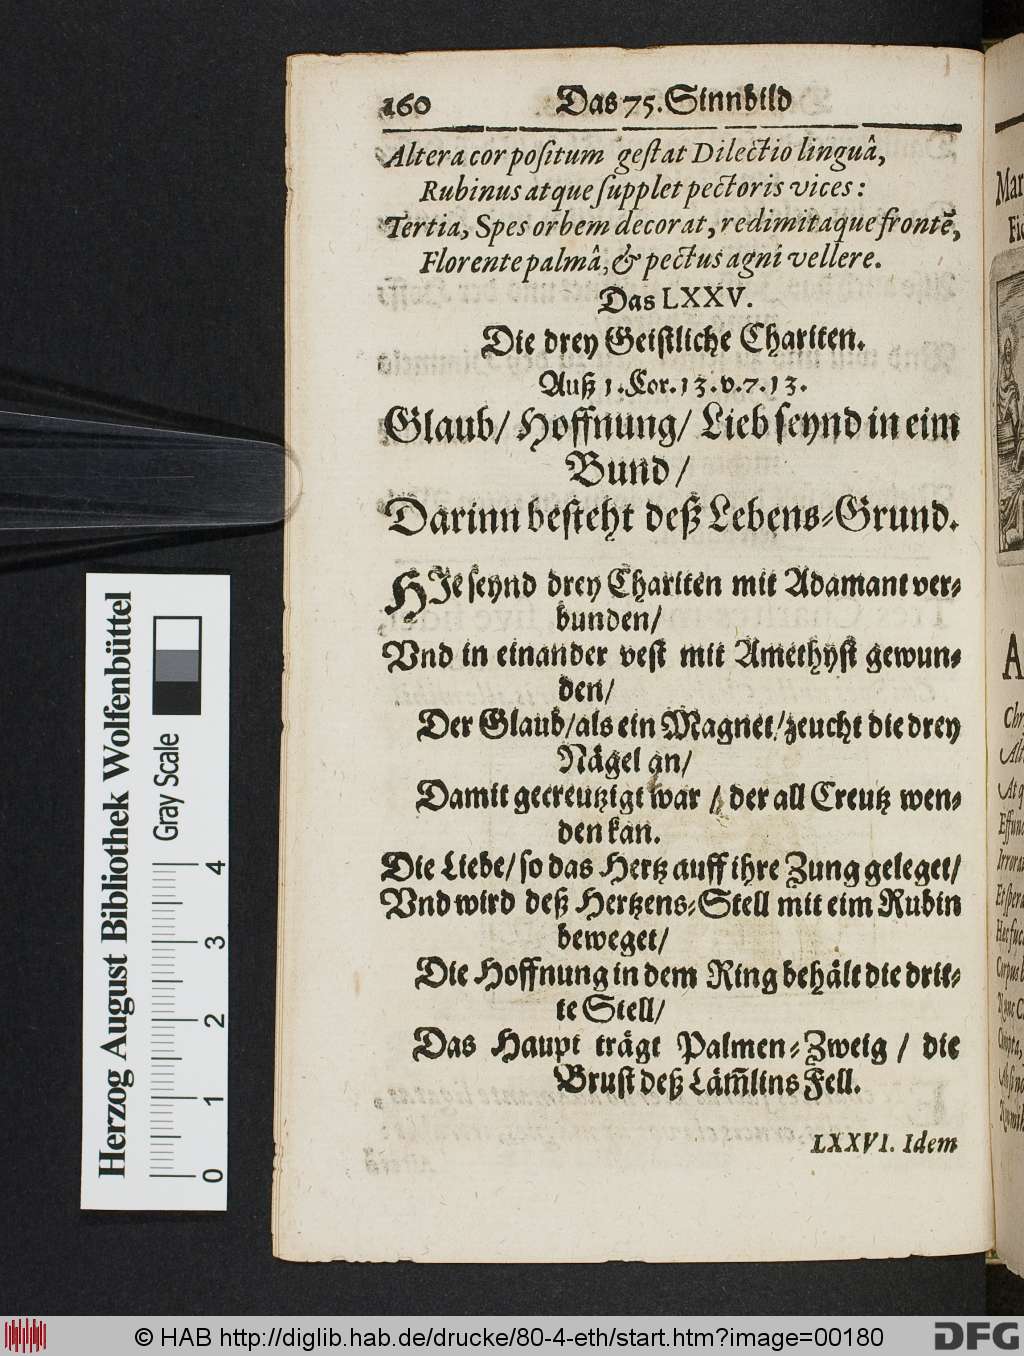 160 Das 75. Sinnbild
Altera cor poſitum geſtat Dilectio linguâ,
Rubinus atque ſupplet pectoris vices:
Tertia, Spes orbem decorat, redimitaque frontē,
Florente palmâ, & pectus agni vellere.
Das LXXV.
Die drey Geiſtliche Chariten.
Auß 1. Cor. 13. v. 7. 13.
Glaub/ Hoffnung/ Lieb ſeynd in eim
Bund/
Darinn beſteht deß Lebens-Grund.
HJe ſeynd drey Chariten mit Adamant ver-
bunden/
Vnd in einander veſt mit Amethyſt gewun-
den/
Der Glaub/ als ein Magnet/ zeucht die drey
Nägel an/
Damit gecreutzigt war / der all Creutz wen-
den kan.
Die Liebe/ ſo das Hertz auff ihre Zung geleget/
Vnd wird deß Hertzens-Stell mit eim Rubin
beweget/
Die Hoffnung in dem Ring behält die drit-
te Stell/
Das Haupt trägt Palmen-Zweig / die
Bruſt deß Läm̃lins Fell.
LXXVI. Idem
Herzog August Bibliothek Wolfenbüttel
Gray Scale
0 1 2 3 4
Mar
A
© HAB http://diglib.hab.de/drucke/80-4-eth/start.htm?image=00180
DFG